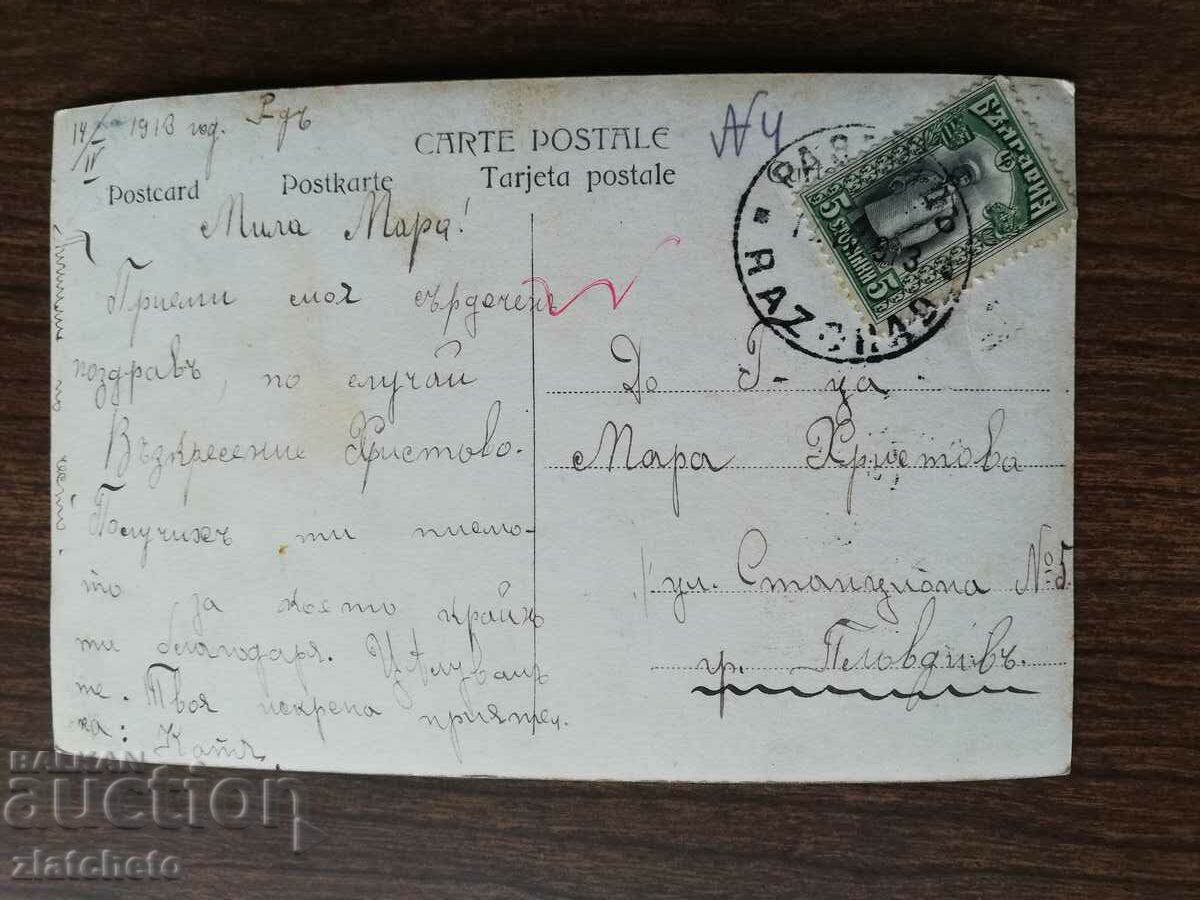 14/IV 1913 год. Р-дъ
CARTE POSTALE
Postcard Postkarte Tarjeta postale
N4
Мила Мара!
Приеми моя сърдеченъ
поздравъ, по случай
Възкресение Христово.
Получихъ ти писмо-
то за което крайнъ
ти благодаря. Цѣлувамъ
те. Твоя искрена прияте-
ка: Катя
До Г-ца
Мара Христова
ул. Станциона № 5
гр. Пловдивъ.
RAZGRAD
БЪЛГАРИЯ
5 5
BALKAN
auction
zlatcheto